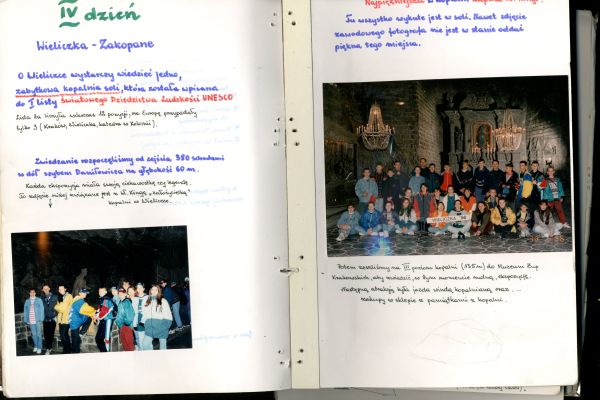 IV dzień
Wieliczka - Zakopane
O Wieliczce wystarczy wiedzieć jedno,
zabytkowa kopalnia soli, która została wpisana
do I listy Światowego Dziedzictwa Ludzkości UNESCO
Lista ta liczyła wówczas 12 pozycji, na Europę przypadały
tylko 3 (Kraków, Wieliczka, katedra w Kolonii).
Zwiedzanie rozpoczęliśmy od zejścia 380 schodami
w dół szybem Daniłowicza na głębokość 60 m.
Każda ekspozycja miała swoją ciekawostkę czy legendę.
To zdjęcie niżej związane jest z
kopalni w Wieliczce.
Tu wszystko wykute jest w soli. Nawet zdjęcie
zawodowego fotografa nie jest w stanie oddać
piękna tego miejsca.
WIELICZKA
Potem zeszliśmy na III poziom kopalni (135 m) do Muzeum Żup
Krakowskich, aby zwiedzić, co tym momencie nudną, ekspozycję.
Następną atrakcją była jazda windą kopalnianą oraz ...
zakupy w sklepie z pamiątkami z kopalni.